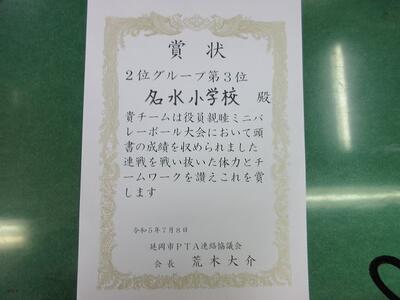 賞状
2位グループ第3位
名水小学校 殿
貴チームは役員親睦ミニバ
レーボール大会において頭
書の成績を収められました
連戦を戦い抜いた体力とチ
ームワークを讃えこれを賞
します
令和5年7月8日
延岡市PTA連絡協議会
会長 荒木大介